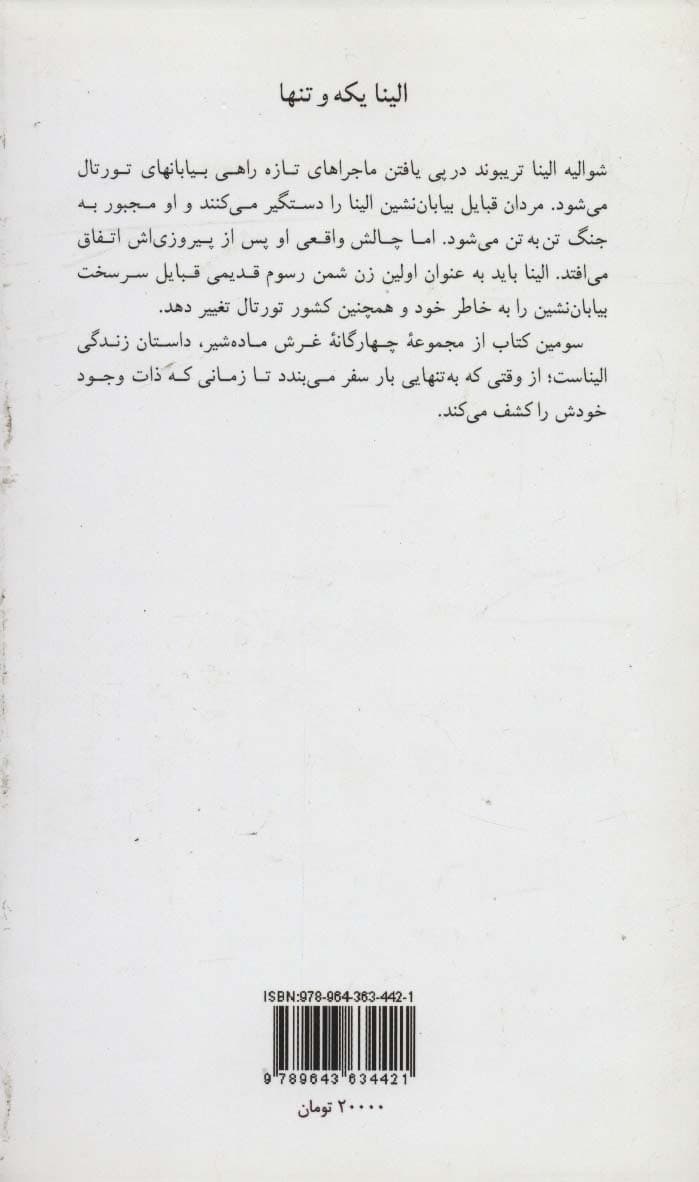 الینا یکه و تنها
شوالیه الینا تریبوند در پی یافتن ماجراهای تازه راهی بیابانهای تورتال
می‌شود. مردان قبایل بیابان‌نشین الینا را دستگیر می‌کنند و او مجبور به
جنگ تن به تن می‌شود. اما چالش واقعی او پس از پیروزی‌اش اتفاق
می‌افتد. الینا باید به عنوان اولین زن شمن رسوم قدیمی قبایل سرسخت
بیابان‌نشین را به خاطر خود و همچنین کشور تورتال تغییر دهد.
سومین کتاب از مجموعهٔ چهارگانهٔ غرش ماده‌شیر، داستان زندگی
الیناست؛ از وقتی که به‌تنهایی بار سفر می‌بندد تا زمانی که ذات وجود
خودش را کشف می‌کند.
ISBN:978-964-363-442-1
9 789643 634421
۲۰۰۰۰ تومان